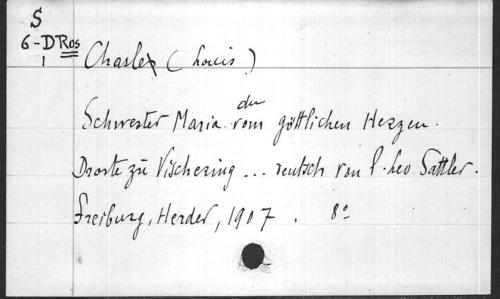 S
6-D Ros
1
Chasle (Louis)
Schwester Maria vom du göttlichen Herzen.
Droste zu Vischering ... deutsch von P. Leo Sattler.
Freiburg, Herder, 1907. 8°